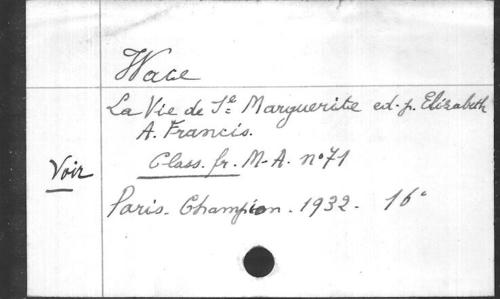 Wace
La Vie de Ste Marguerite ed. p. Elizabeth
A. Francis.
Voir Class. fr. M-A. n°71
Paris. Champion. 1932. 16°